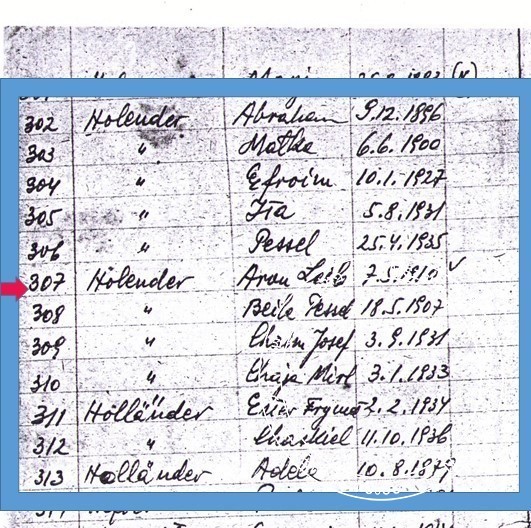 302 Holender Abraham 9.12.1896
303 " Matka 6.6.1900
304 " Efroim 10.1.1927
305 " Ita 5.8.1931
306 " Pessel 25.4.1935
307 Holender Aron Leib 7.5.1910 ✓
308 " Beile Pessel 18.5.1907
309 " Chaim Josef 3.9.1931
310 " Chaja Mirl 3.1.1933
311 Holländer Ester Fryma 2.2.1934
312 " Chaskiel 11.10.1936
313 Holländer Adela 10.8.1879